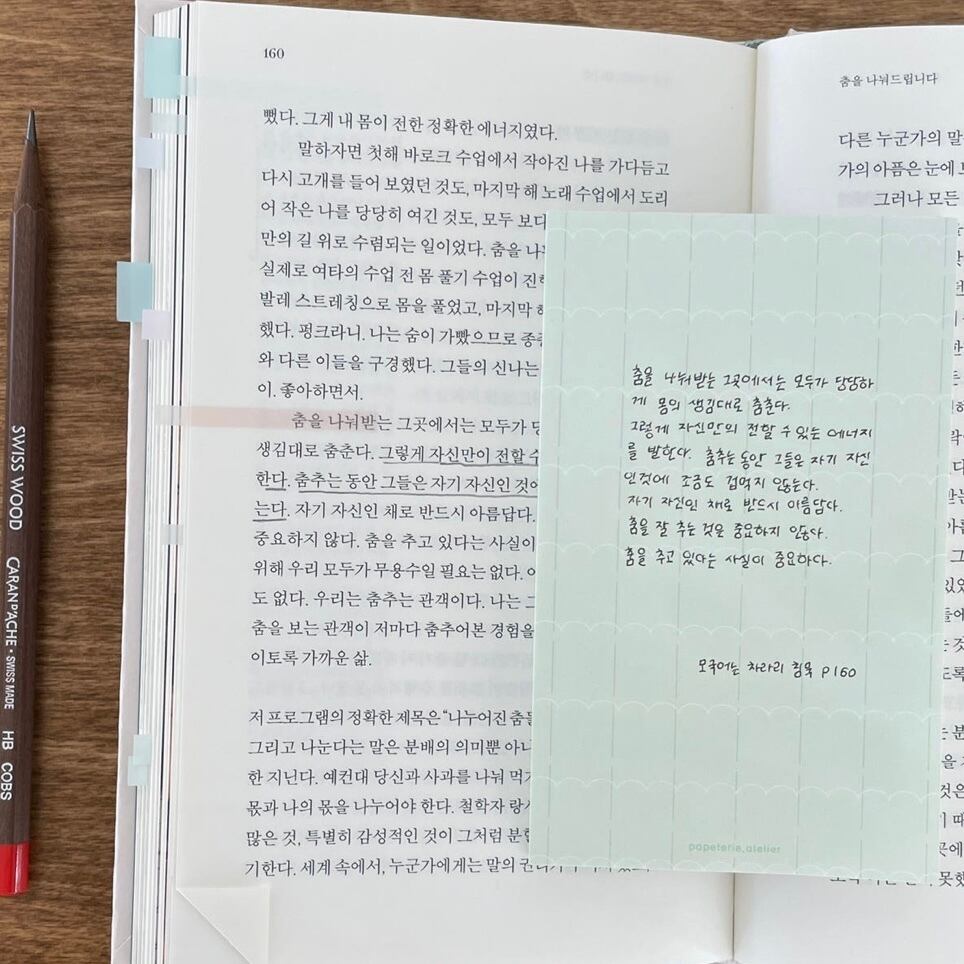 160
뻤다. 그게 내 몸이 전한 정확한 에너지였다.
말하자면 첫해 바로크 수업에서 작아진 나를 가다듬고
다시 고개를 들어 보였던 것도, 마지막 해 노래 수업에서 도리
어 작은 나를 당당히 여긴 것도, 모두 보다
만의 길 위로 수렴되는 일이었다. 춤을
실제로 여타의 수업 전 몸 풀기 수업이
발레 스트레칭으로 몸을 풀었고, 마지막
했다. 펑크라니. 나는 숨이 가빴으므로
와 다른 이들을 구경했다. 그들의 신나는
이. 좋아하면서.
춤을 나눠받는 그곳에서는 모두가
생김대로 춤춘다. 그렇게 자신만이 전할 수
한다. 춤추는 동안 그들은 자기 자신인 것에
는다. 자기 자신인 채로 반드시 아름답다.
중요하지 않다. 춤을 추고 있다는 사실이
위해 우리 모두가 무용수일 필요는 없다.
도 없다. 우리는 춤추는 관객이다. 나는
춤을 보는 관객이 저마다 춤추어본 경험을
이토록 가까운 삶.
저 프로그램의 정확한 제목은 “나누어진
그리고 나눈다는 말은 분배의 의미뿐
한 지닌다. 예컨대 당신과 사과를 나눠
몫과 나의 몫을 나누어야 한다. 철학자
많은 것, 특별히 감성적인 것이 그처럼
기한다. 세계 속에서, 누군가에게는 말의
춤을 나눠드립니다
다른 누군가의 말
가의 아픔은 눈에
그러나 모든
춤을 나눠받는 그곳에서는 모두가 당당하
게 몸의 생김대로 춤춘다.
그렇게 자신만의 전할 수 있는 에너지
를 발한다. 춤추는 동안 그들은 자기 자신
인것에 조금도 겁먹지 않는다.
자기 자신인 채로 반드시 아름답다.
춤을 잘 추는 것은 중요하지 않다.
춤을 추고 있다는 사실이 중요하다.
모국어는 차라리 침묵 P160
papeterie.atelier
SWISS WOOD CARAN D'ACHE • SWISS MADE HB COBS